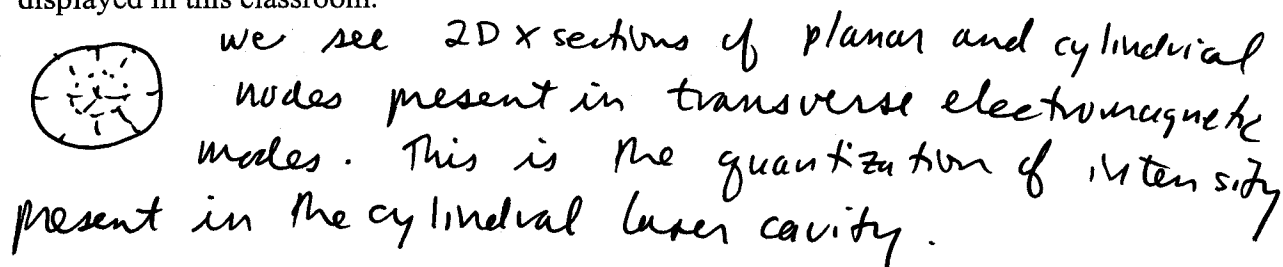 displayed in this classroom.
we see 2D x sections of planar and cylindrical
nodes present in transverse electromagnetic
modes. This is the quantization of intensity
present in the cylindral laser cavity.